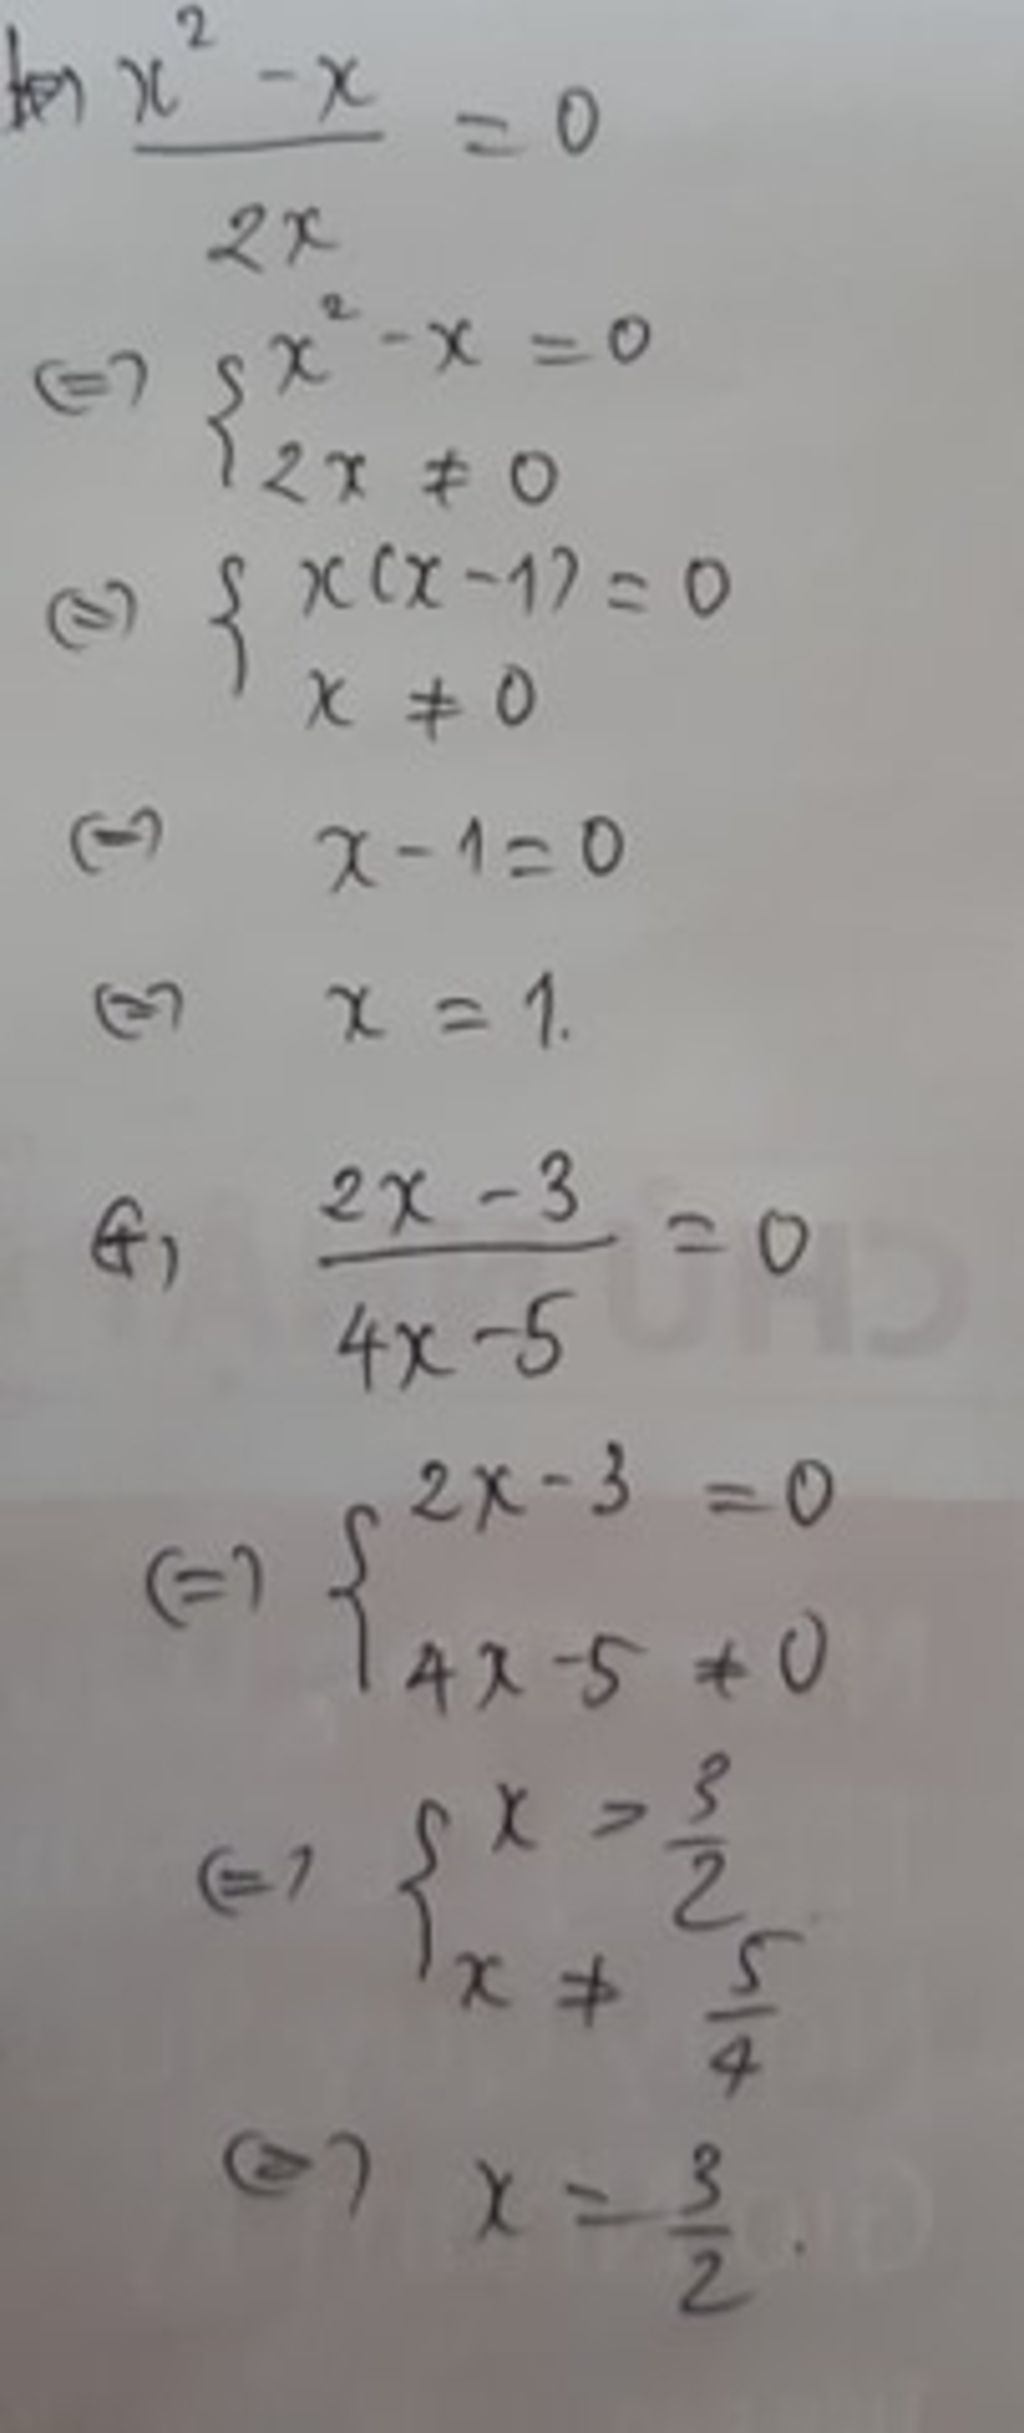 x² - x / 2x = 0
(=) { x² - x = 0
2x ≠ 0
(=) { x(x-1) = 0
x ≠ 0
(=) x - 1 = 0
(=) x = 1.
2x - 3 / 4x - 5 = 0
(=) { 2x - 3 = 0
4x - 5 ≠ 0
(=) { x = 3/2
x ≠ 5/4
(=) x = 3/2.